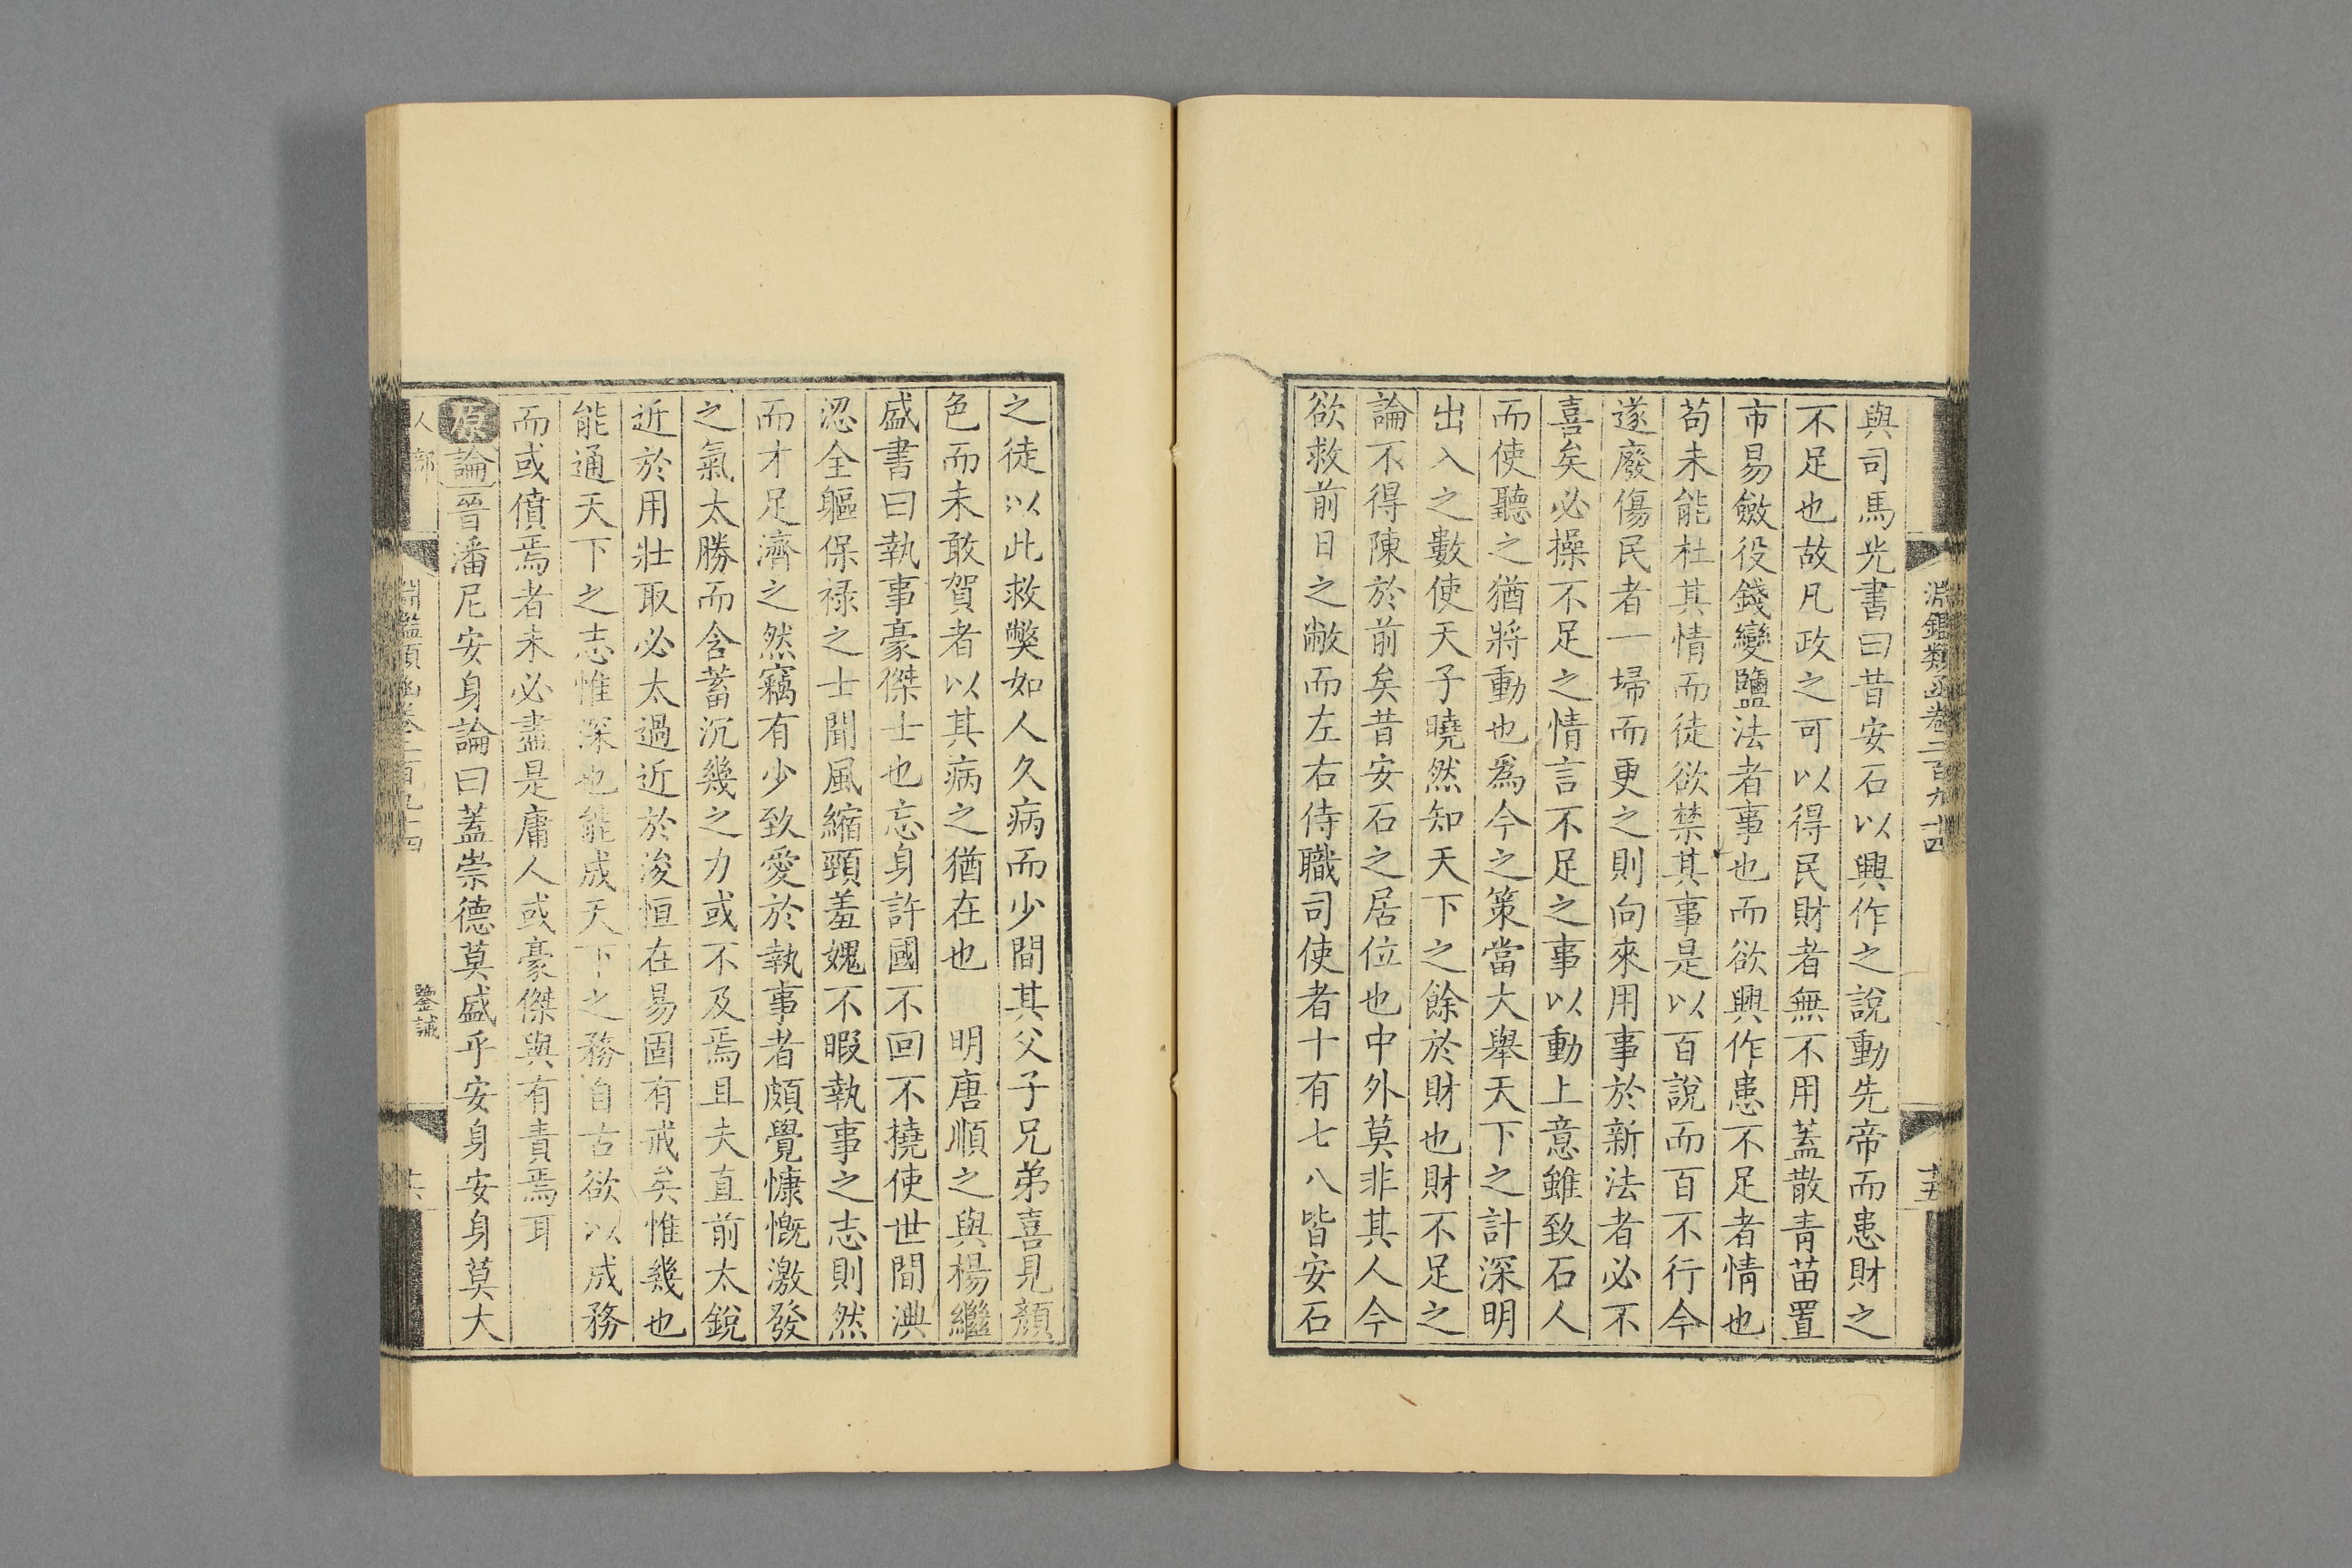 淵鑑類函卷二百九十四
十五
與司馬光書曰昔安石以興作之說動先帝而患財之
不足也故凡政之可以得民財者無不用蓋散青苗置
市易斂役錢變鹽法者事也而欲興作患不足者情也
苟未能杜其情而徒欲禁其事是以百說而百不行今
遂廢傷民者一埽而更之則向來用事於新法者必不
喜矣必操不足之情言不足之事以動上意雖致石人
而使聽之猶將動也爲今之策當大舉天下之計深明
出入之數使天子曉然知天下之餘於財也財不足之
論不得陳於前矣昔安石之居位也中外莫非其人今
欲救前日之敝而左右侍職司使者十有七八皆安石
之徒以此救獘如人久病而少間其父子兄弟喜見顏
色而未敢賀者以其病之猶在也 明唐順之與楊繼
盛書曰執事豪傑士也忘身許國不回不撓使世間淟
涊全軀保祿之士聞風縮頸羞媿不暇執事之志則然
而才足濟之然竊有少致愛於執事者頗覺慷慨激發
之氣太勝而含蓄沉幾之力或不及焉且夫直前太銳
近於用壯取必太過近於浚恒在易固有戒矣惟幾也
能通天下之志惟深也能成天下之務自古欲以成務
而或僨焉者未必盡是庸人或豪傑與有責焉耳
原論晉潘尼安身論曰蓋崇德莫盛乎安身安身莫大
人部
淵鑑類函卷二百九十四
鑒誡